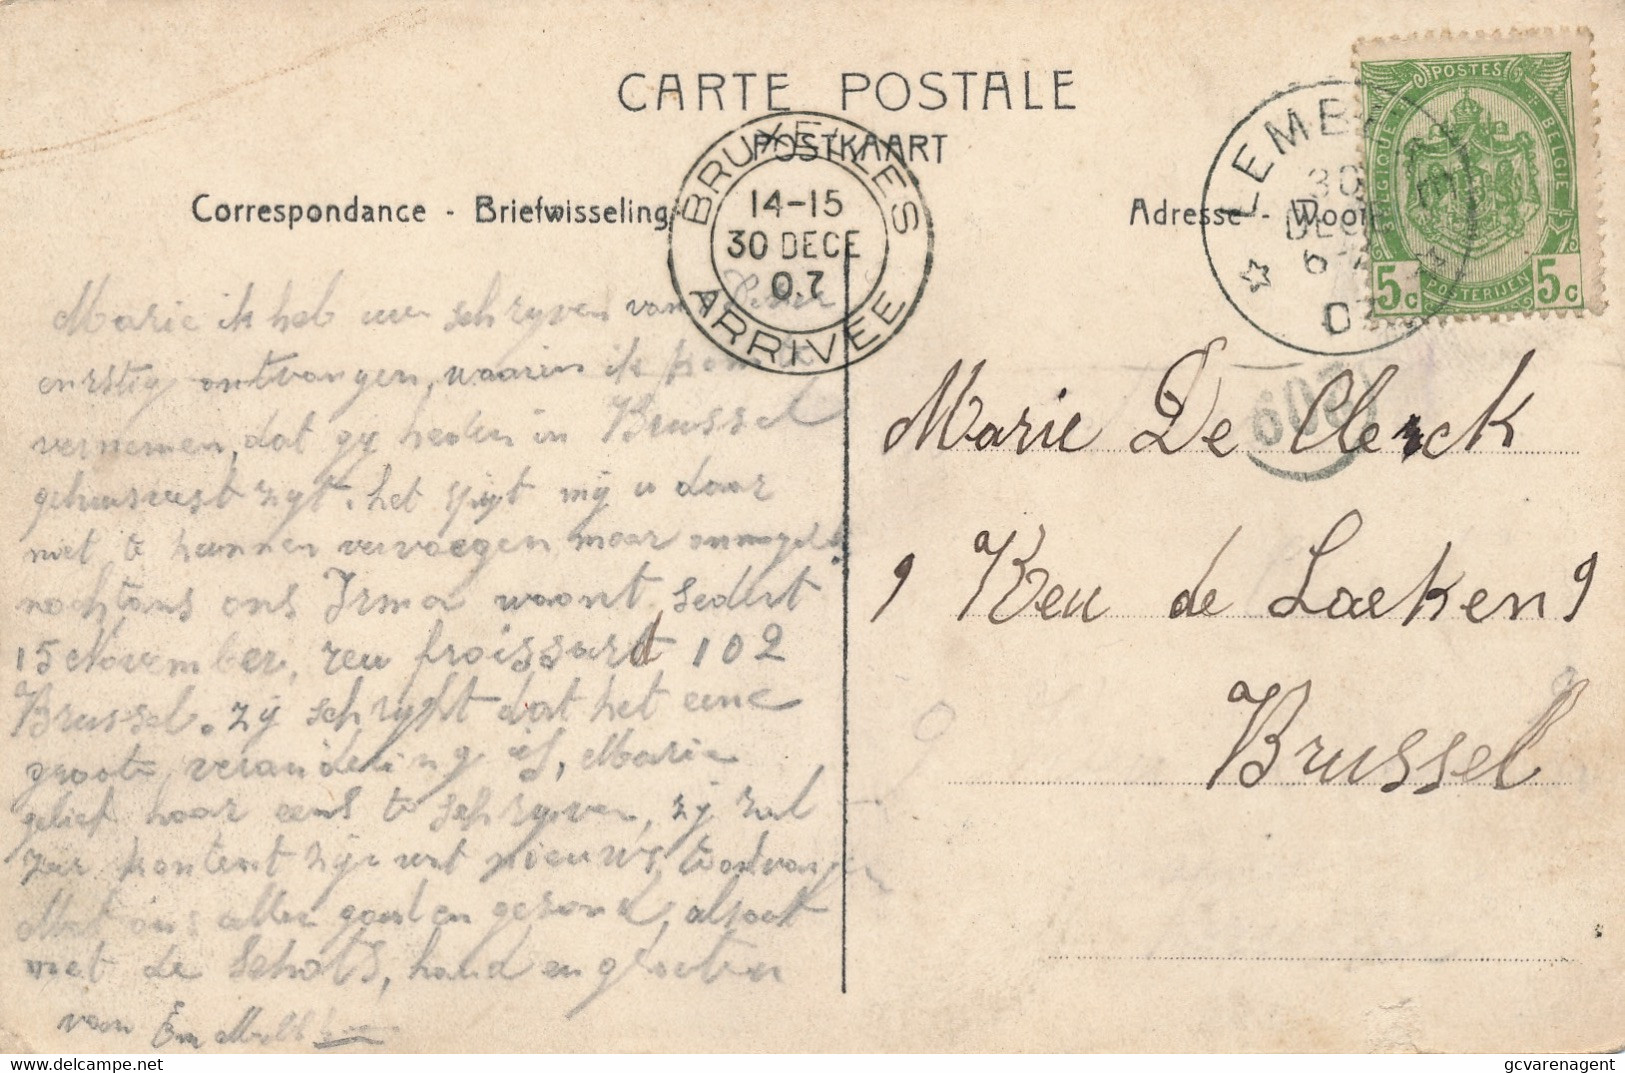 CARTE POSTALE
POSTKAART
Correspondance - Briefwisseling
Adresse - Woon
BRUXELLES
14-15
30 DECE
07
ARRIVEE
LEMB
30
DECE
6
07
POSTES
BELGIQUE
BELGIE
5c
POSTERIJEN
5c
609
Marie ik heb uw schryven van
ontvangen, waarin ik kom te
vernemen, dat gy heden in Brussel
gehuisvest zyt. het spyt mij u daar
niet te kunnen vervoegen, maar onmogel:
nochtans ons Irma woont sedert
15 November, reu froissard 102
Brussel. zy schryft dat het eene
groote verandering is, Marie
gelief haar eens te schryven, zy zal
zeer kontent zijn wat nieuws te ontvangen
Met ons alles goed en gezond, alsook
met de Schots, hand en groeten
van Em
Marie De Clerck
9 Reu de Laeken 9
Brussel
www.delcampe.net
gcvarenagent